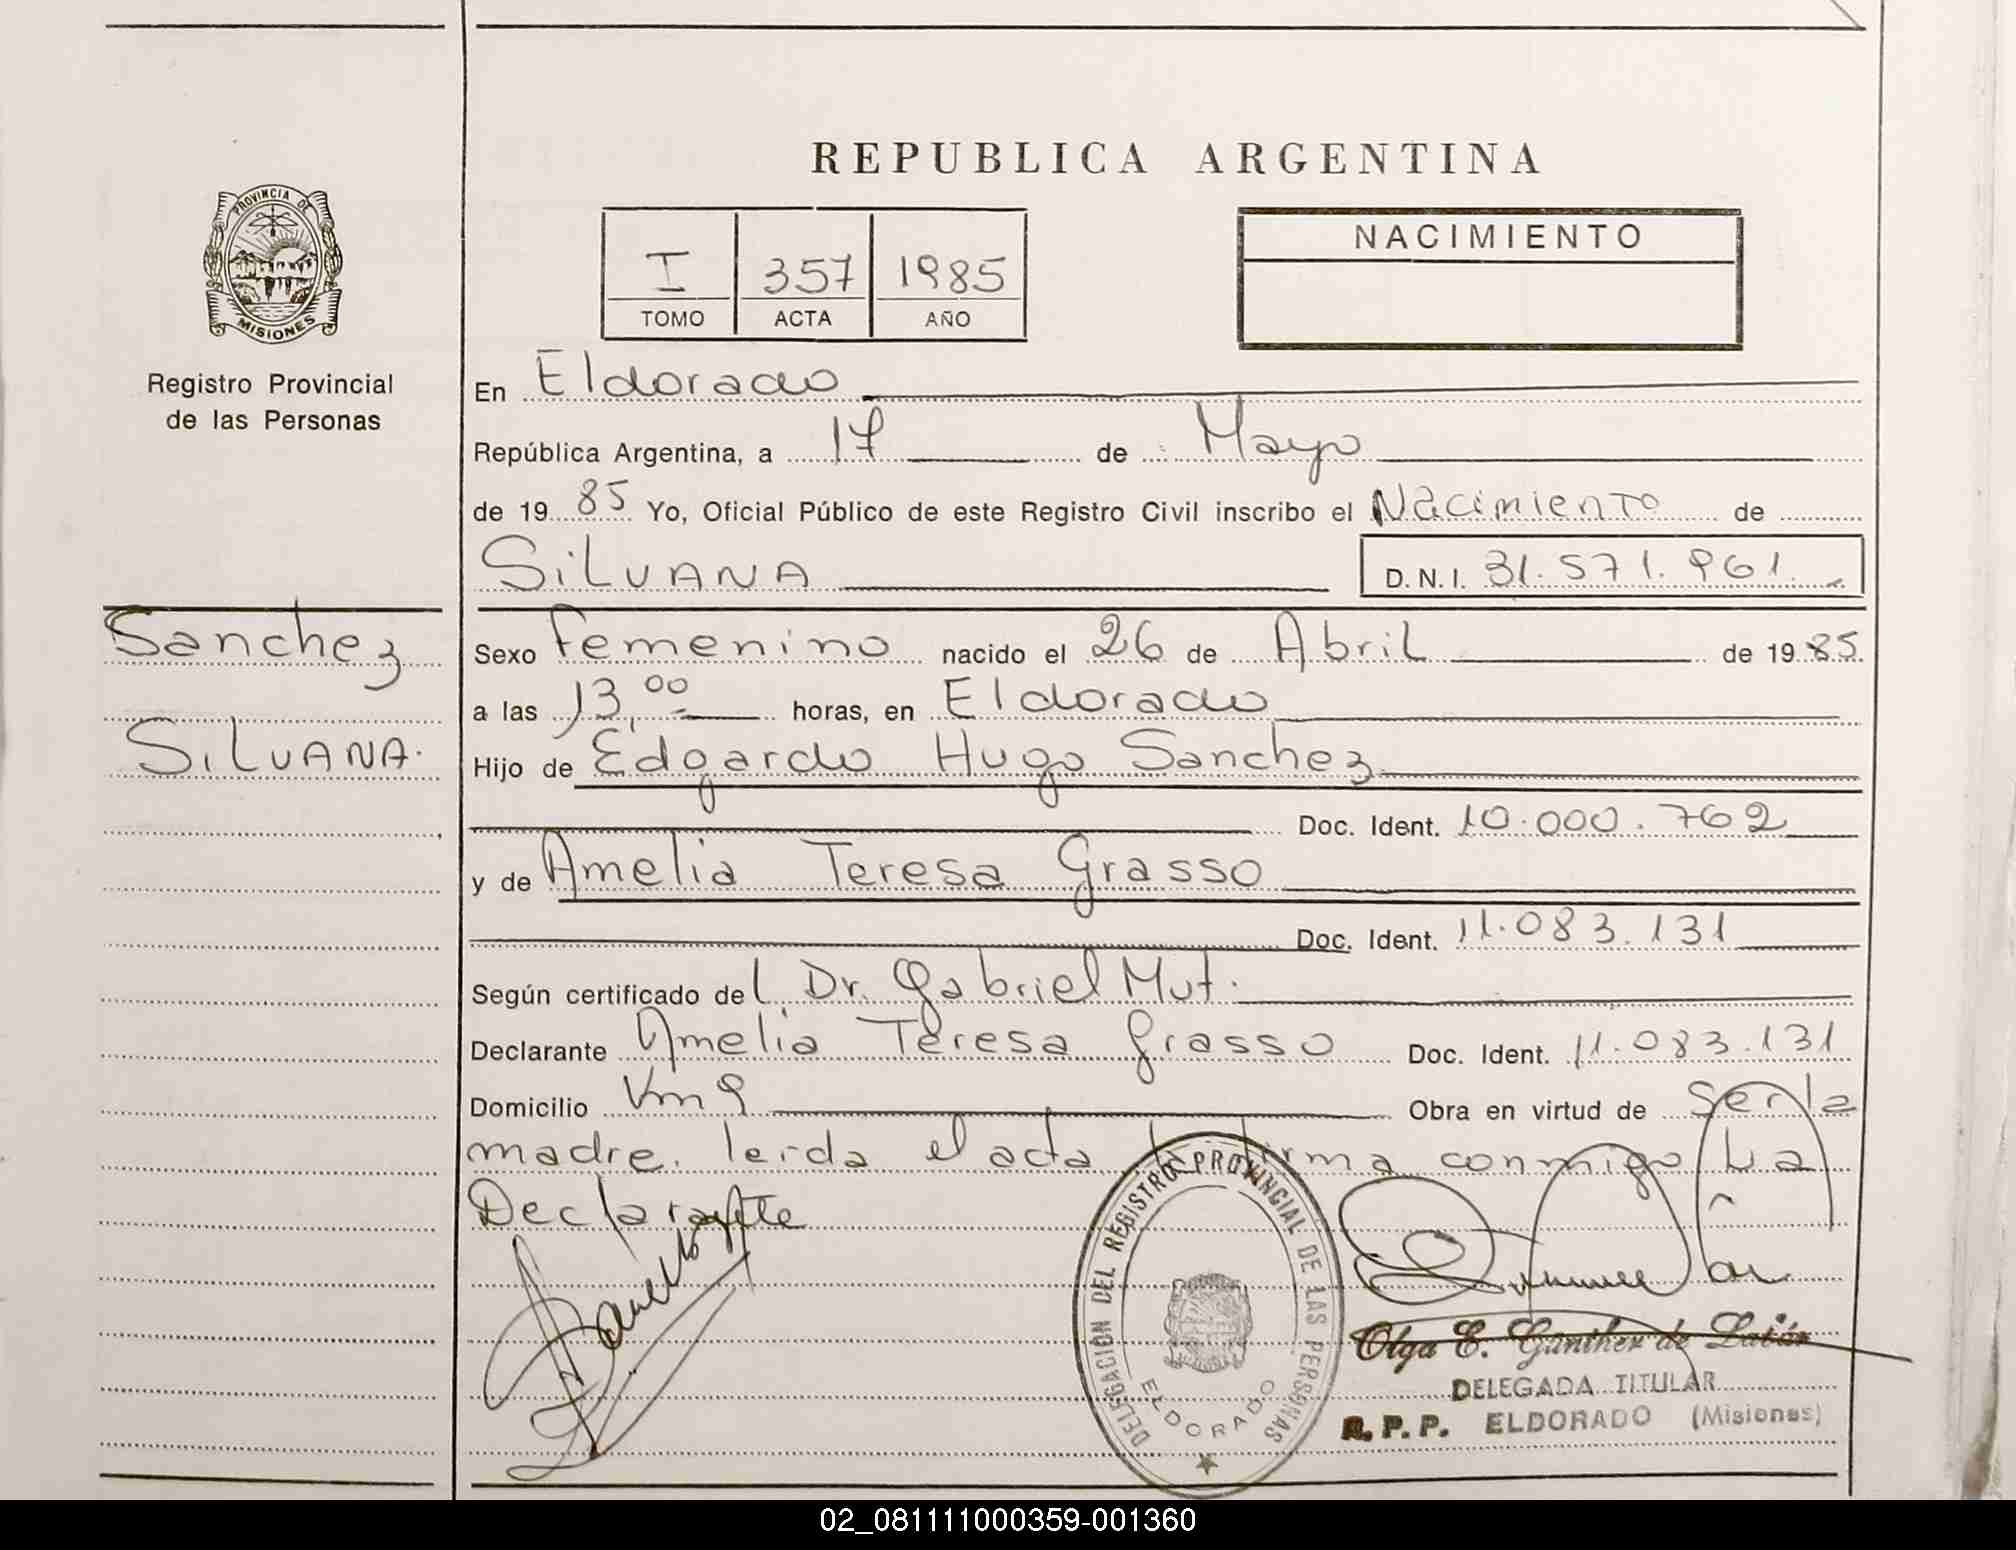 REPUBLICA ARGENTINA
PROVINCIA DE
MISIONES
Registro Provincial
de las Personas
I 357 1985
TOMO ACTA AÑO
NACIMIENTO
En Eldorado
República Argentina, a 17 de Mayo
de 19 85 Yo, Oficial Público de este Registro Civil inscribo el Nacimiento de
SILVANA D.N.I. 31.571.961.
Sanchez
SILVANA.
Sexo Femenino nacido el 26 de Abril de 1985.
a las 13,00 horas, en Eldorado
Hijo de Edgardo Hugo Sanchez
Doc. Ident. 10.000.762
y de Amelia Teresa Grasso
Doc. Ident. 11.083.131
Según certificado del Dr. Gabriel Mut.
Declarante Amelia Teresa Grasso Doc. Ident. 11.083.131
Domicilio Km 9 Obra en virtud de ser la
madre. leida el acta la firma conmigo La
Declarante
DELEGACION DEL REGISTRO PROVINCIAL DE LAS PERSONAS
ELDORADO
Olga E. Günther de
DELEGADA TITULAR
R.P.P. ELDORADO (Misiones)
02_081111000359-001360